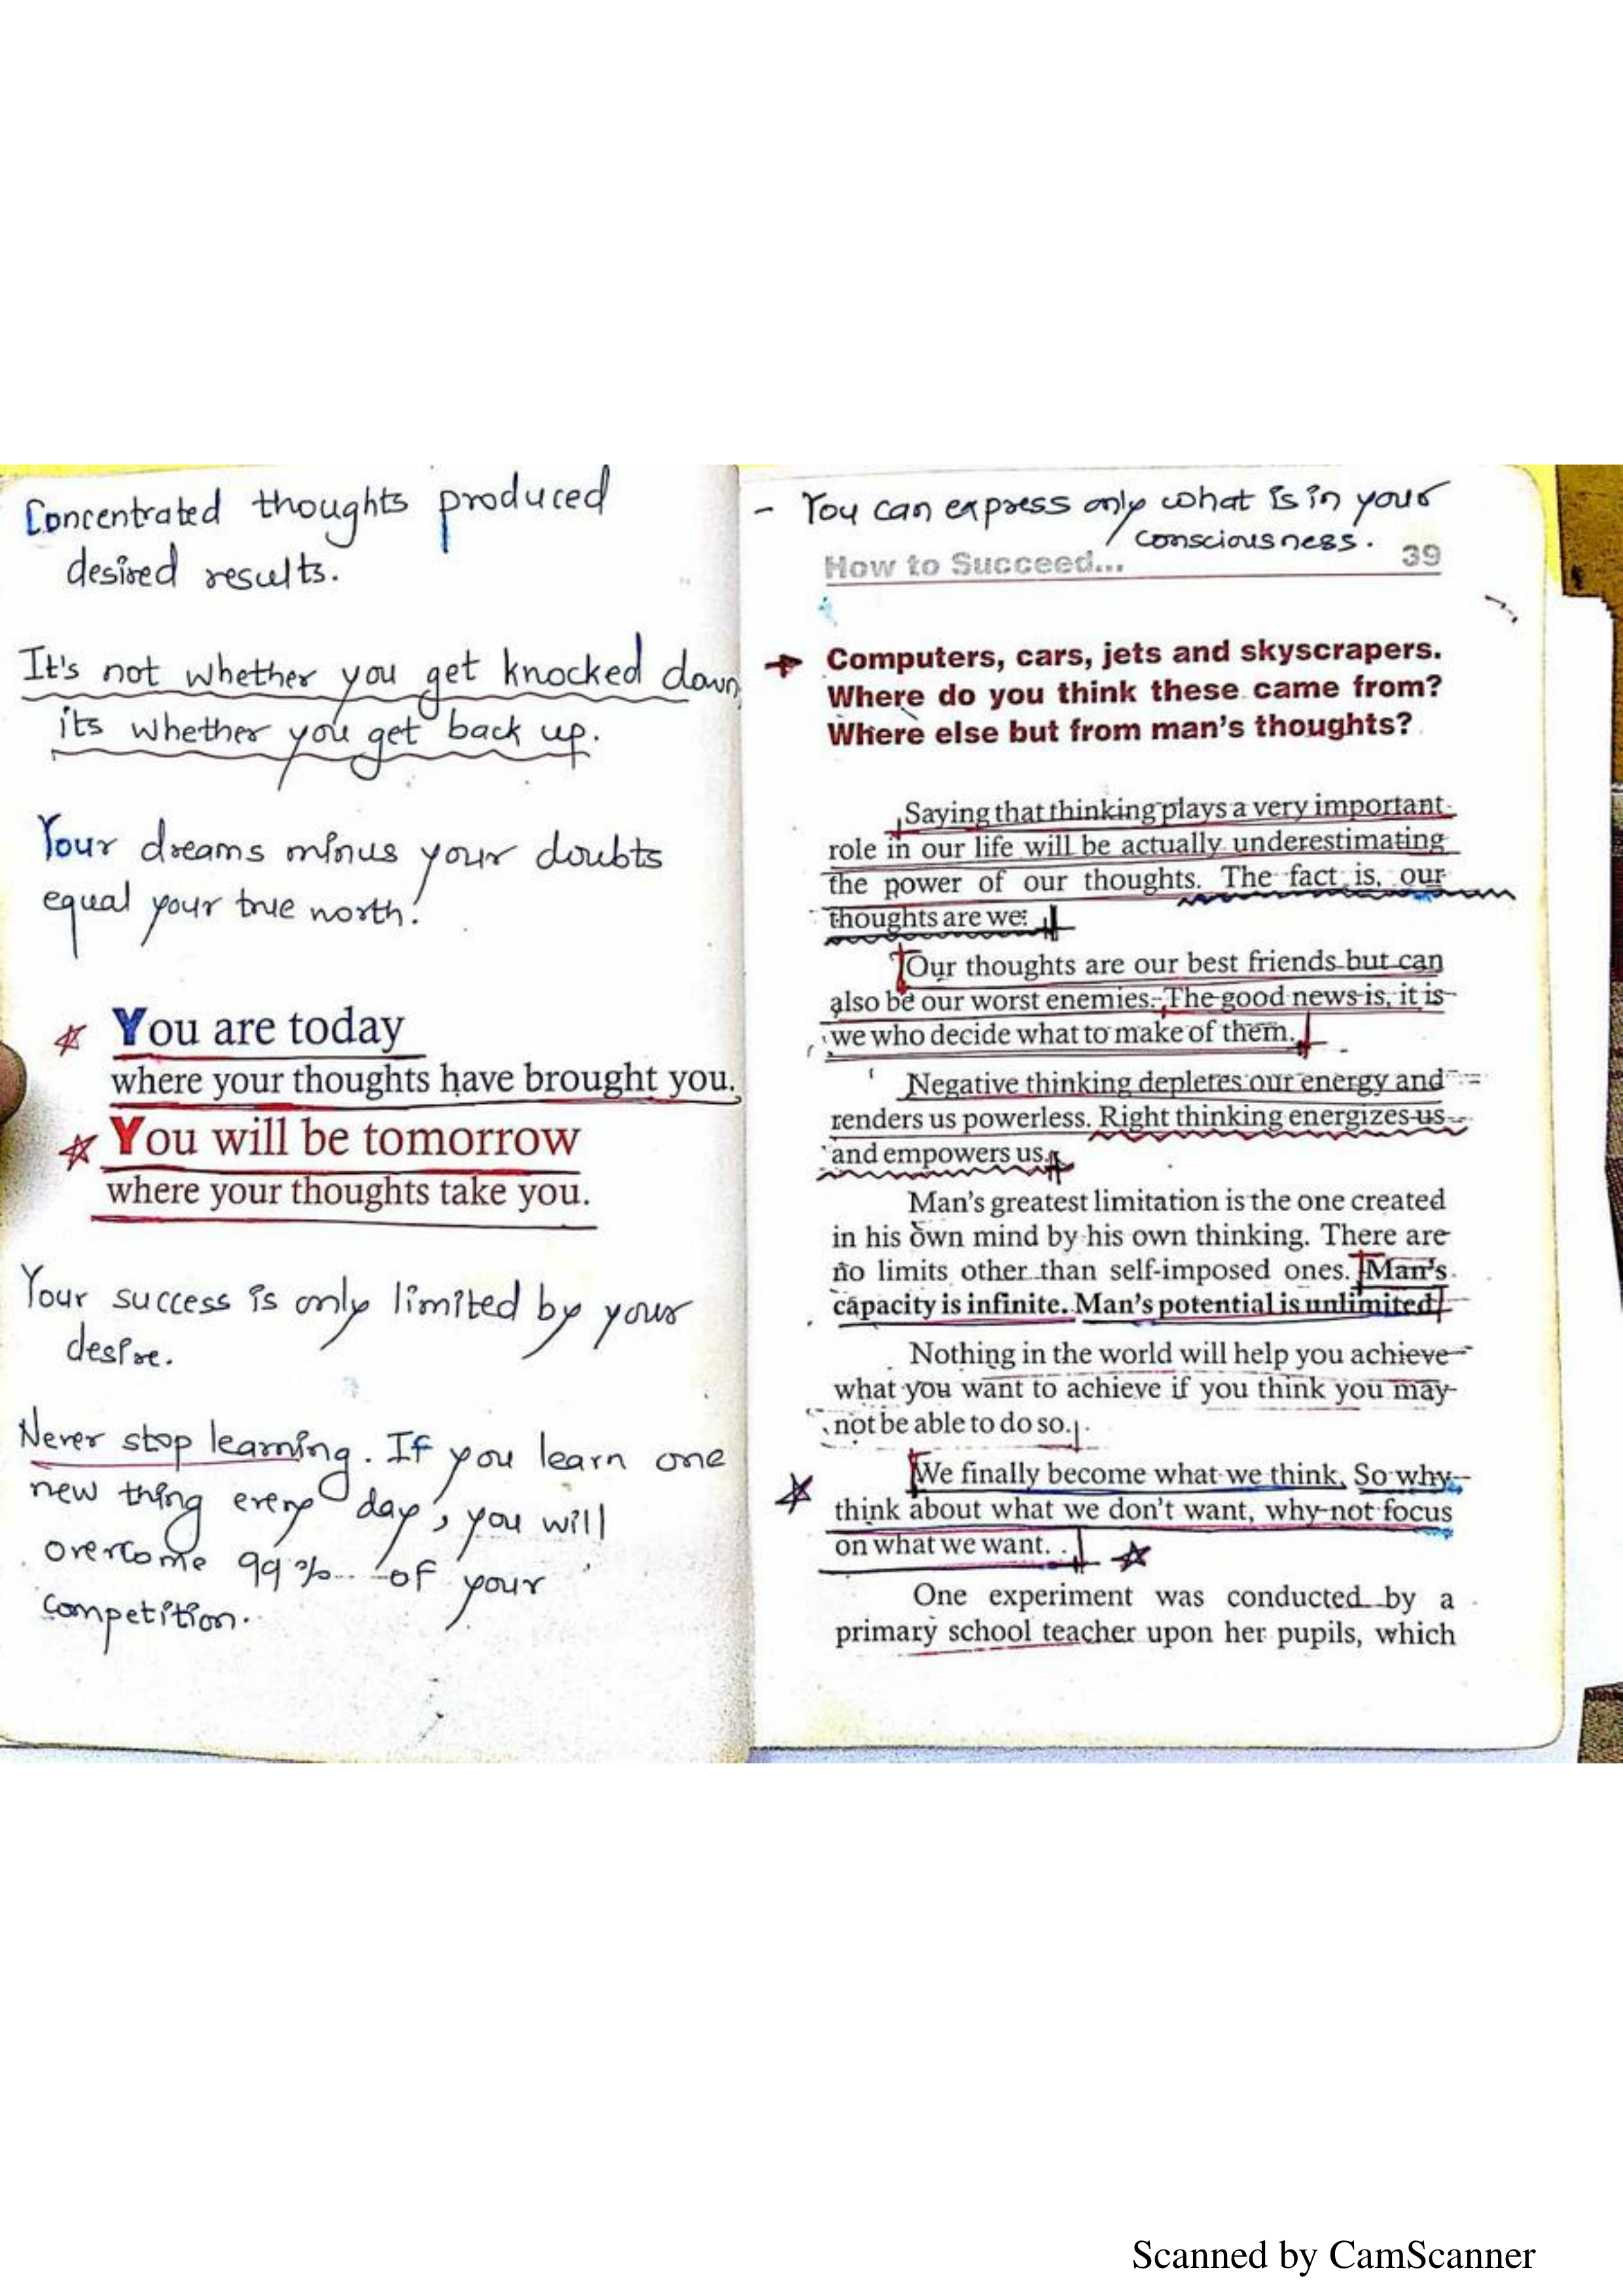 Concentrated thoughts produced
desired results.
It's not whether you get knocked down,
its whether you get back up.
Your dreams minus your doubts
equal your true north!
You are today
where your thoughts have brought you.
You will be tomorrow
where your thoughts take you.
Your success is only limited by your
desire.
Never stop learning. If you learn one
new thing every day, you will
overcome 99% of your
competition.
- You can express only what is in your
consciousness.
How to Succeed... 39
Computers, cars, jets and skyscrapers.
Where do you think these came from?
Where else but from man's thoughts?
Saying that thinking plays a very important
role in our life will be actually underestimating
the power of our thoughts. The fact is, our
thoughts are we.
Our thoughts are our best friends but can
also be our worst enemies. The good news is, it is
we who decide what to make of them.
Negative thinking depletes our energy and
renders us powerless. Right thinking energizes us
and empowers us.
Man's greatest limitation is the one created
in his own mind by his own thinking. There are
no limits other than self-imposed ones. Man's
capacity is infinite. Man's potential is unlimited
Nothing in the world will help you achieve
what you want to achieve if you think you may
not be able to do so.
We finally become what we think. So why
think about what we don't want, why not focus
on what we want. .
One experiment was conducted by a
primary school teacher upon her pupils, which
Scanned by CamScanner